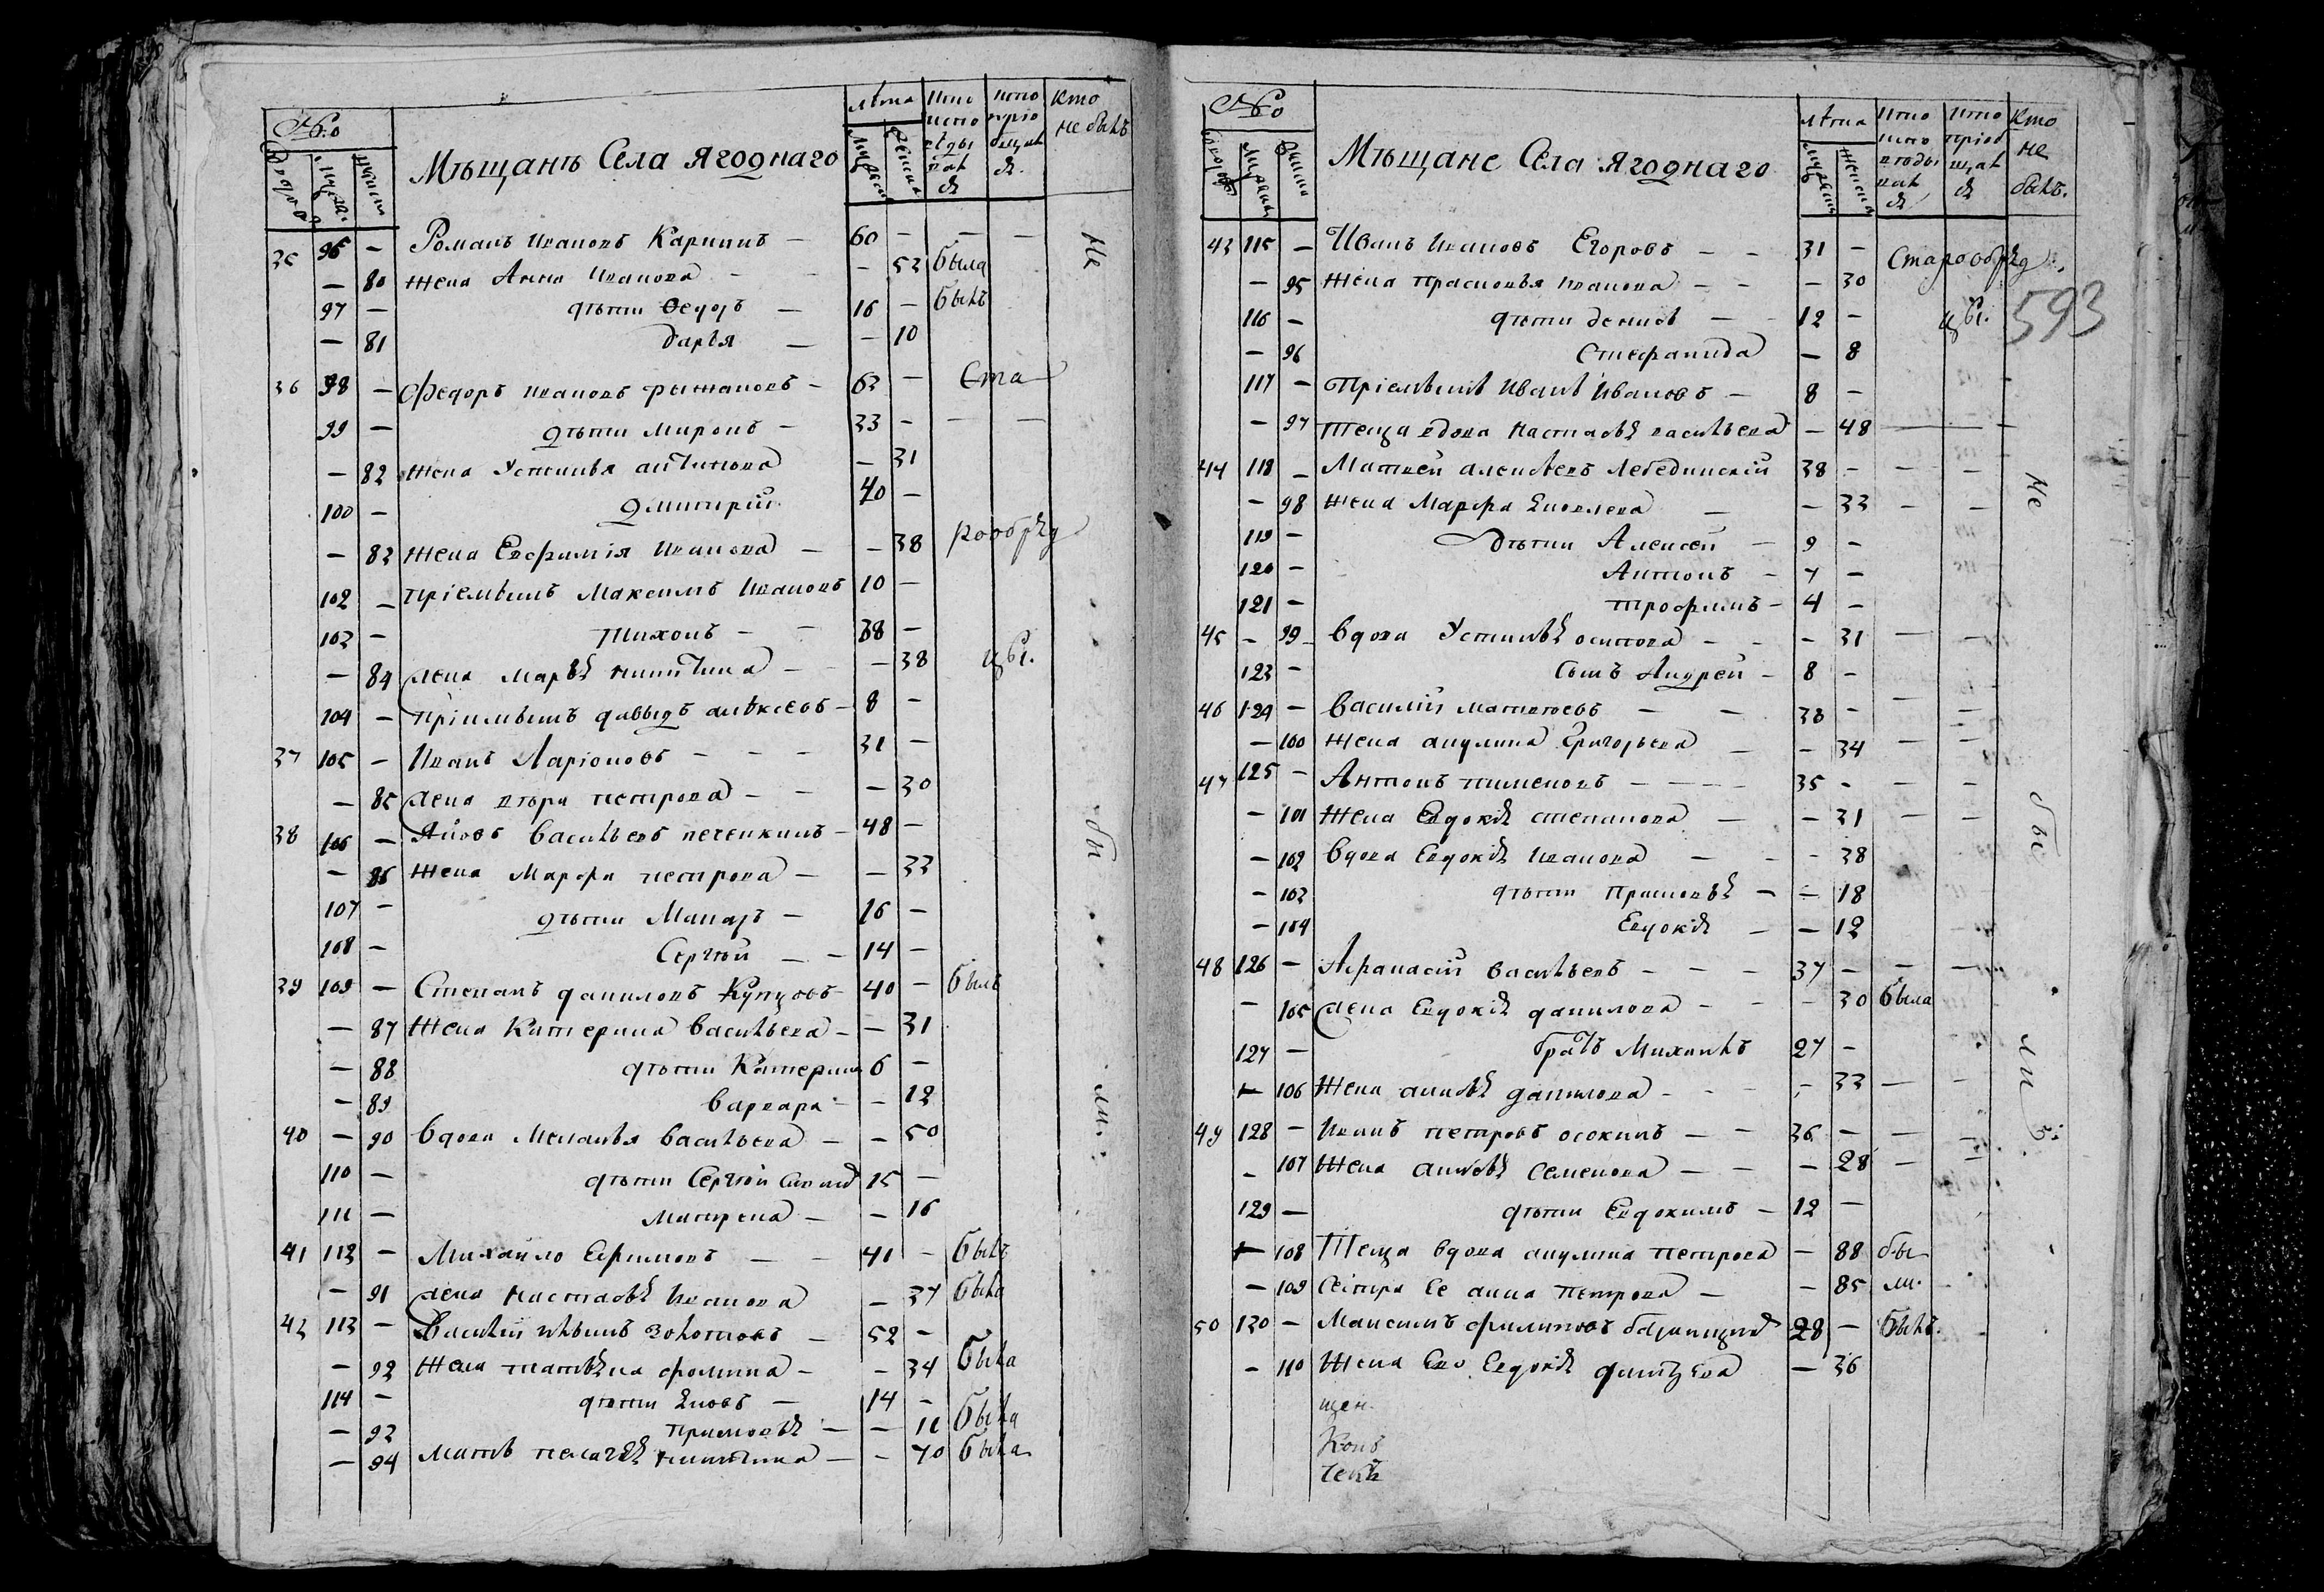 №о
Мѣщанъ Села Ягоднаго
Лѣта
Кто
не былъ
35 96 — Романъ Ивановъ Карпинъ — 60 — — —
— 80 жена Анна Иванова — — 53 была
97 — дѣти Ѳедоръ — 16 — былъ
— 81 дарья — — 10
36 98 — Федоръ Ивановъ рыжановъ — 63 — Ста
99 — дѣти миронъ — 33 — — —
— 82 жена Устинья антипова — 31
100 — Дмитрій 40 —
— 83 жена Евфимія Иванова — — 38 рообряд
102 — пріемышъ Максимъ Ивановъ 10 —
103 — Тихонъ — 38 —
— 84 жена марья никитина — — 38 цы.
104 — пріемышъ давыдъ алѣксѣевъ — 8 —
37 105 — Иванъ Ларіоновъ — — — 31 —
— 85 жена вѣра петрова — — — 30
38 106 — Яковъ Васильевъ печенкинъ — 48 —
— 86 жена Марфа петрова — — 33
107 — дѣти Макаръ — 16 —
108 — Сергѣй — — 14 —
39 109 — Степанъ даниловъ Купцовъ 40 — былъ
— 87 жена Катерина Васильева — — 31
— 88 дѣти Катерина 6 —
— 89 Варвара — — 12
40 — 90 Вдова Меланья Васильева — — 50
110 — дѣти Сергѣй 15 —
111 — Матрена — — 16
41 112 — Михайло Ефимовъ — — 41 — былъ
— 91 жена настасья Иванова — 37 была
42 113 — Василій Золотовъ — 52 —
— 92 жена татьяна фомина — — 34 была
114 — дѣти Яковъ — 14 —
— 93 Прасковья — — 11 была
— 94 мать пелагѣя никитина — — 70 была
Не
бы
ли.
№о
Мѣщане Села Ягоднаго
Лѣта
Кто
не
былъ.
593
43 115 — Иванъ Ивановъ Егоровъ — — 31 — Старообряд
— 95 жена прасковья Иванова — — — 30
116 — дѣти денисъ — 12 — цы.
— 96 Степанида — 8
117 — Пріемышъ Иванъ Ивановъ — 8 —
— 97 теща вдова настасья васильева — 48 — —
44 118 — Матвей алексѣевъ Лебединскій 38 — — —
— 98 жена Марфа Яковлева — — 33 — —
119 — Дѣти Алексей — 9 —
120 — Антонъ — 7 —
121 — трофимъ — 4 —
45 — 99 — Вдова Устинья осипова — — — 31 — —
123 — Сынъ Андрей — 8 —
46 124 — Василій матвѣевъ — — 38 — — —
— 100 жена акулина Григорьева — — 34 — —
47 125 — Антонъ пименовъ — — — — 35 — — —
— 101 жена Евдокія степанова — — 31 — —
— 102 Вдова Евдокія Иванова — — — 38
— 103 дѣти прасковья — — 18
— 104 Евдокія — — 12
48 126 — Афанасій васильевъ — — — 37 — — —
— 105 жена Евдокія данилова — — — 30 была
127 — братъ Михаилъ 27 —
— 106 жена данилова — — — 33 — —
49 128 — Иванъ петровъ осокинъ — — 36 — — —
— 107 жена Семенова — — — 28 — —
129 — дѣти Евдокимъ — 12 —
— 108 Теща вдова акулина петрова — 88 бы
— 109 Сестра Ее анна Петрова — — 85 ли.
50 130 — Максимъ филиповъ 28 — былъ.
— 110 жена Его Евдокія — 36
щен.
Конъ
чекъ
Не
бы
ли